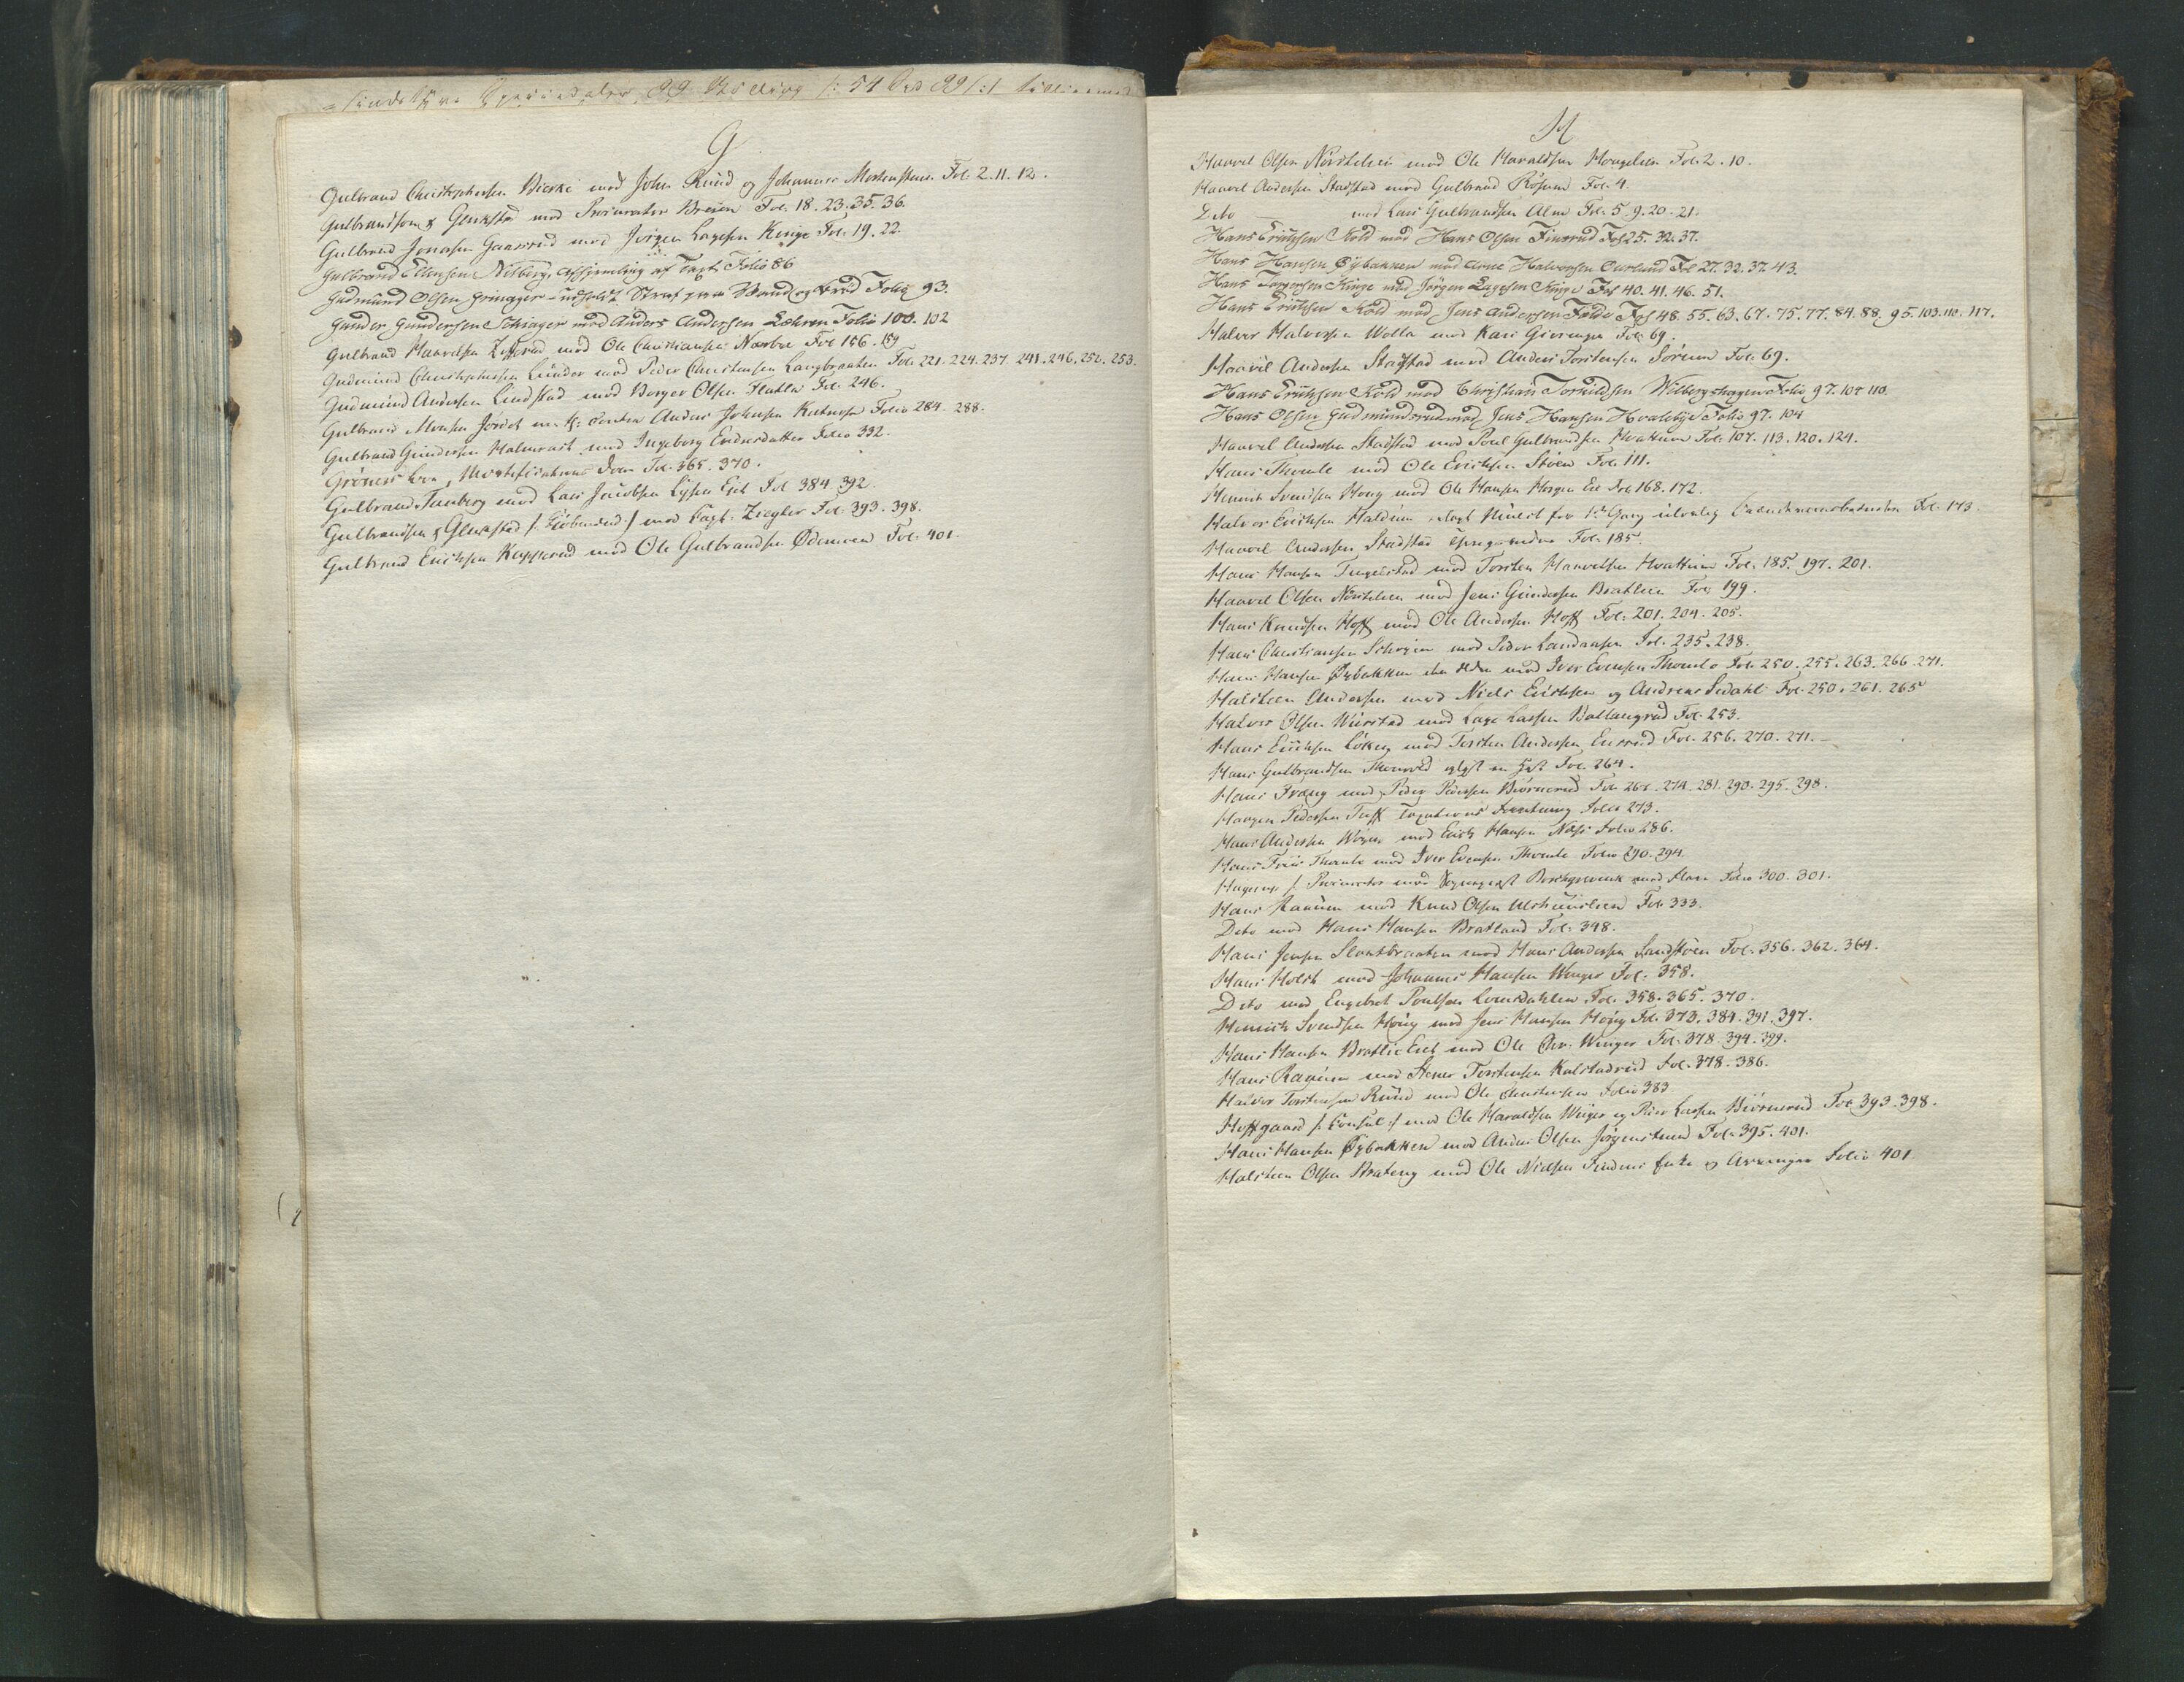 G
Gulbrand Christophersen Bierke mod John Ruud og Johannes Mortenstuen Fol: 2. 11. 12.
Gulbrandson & Gluckstad mod Procurator Breien Fol. 18. 23. 35. 36.
Gulbrand Jonasen Gaarrud mod Jørgen Lagesen Kinge Fol: 19. 22.
Gulbrand Ellensen Nesberg, af Taxt Folio 86
Gudmund Olsen Grinager udholdt Straf paa Vand og Brød Folio 93.
Gunder Gundersen Schiager mod Anders Andersen Lohren Folio 100. 102
Gulbrand Haavelsen mod Ole Christiansen Narboe Fol 156. 159
Gudmund Christophersen Lunder mod Peder Christensen Langbraaten Fol: 221. 224. 237. 241. 246. 252. 253.
Gudmund Andersen Lindstad mod Borger Olsen Flatla Fol. 246.
Gulbrand Monsen Jordet m. fl. contra Anders Johnsen Folio 284. 288.
Gulbrand Gundersen Halmrast mod Ingeborg Endresdatter Folio 332.
Grönens Fol. 365. 370.
Gulbrand Tanberg mod Lars Jacobsen Lysen Eiet Fol 384. 392.
Gulbrandsen & Gluckstad /: Kiöbmænd :/ mod Capt. Ziegler Fol. 393. 398.
Gulbrand Erichsen Kopperud mod Ole Gulbrandsen Ødemoen Fol. 401.
H
Haavel Olsen Nordstelien mod Ole Haraldsen Hougslien Fol. 2. 10.
Haavel Andersen Stadstad mod Gulbrand Rosund Fol: 4.
Dito — mod Lars Gulbrandsen Alm Fol: 5. 9. 20. 21.
Hans Erichsen Kold mod Hans Olsen Finsrud Fol 25. 32. 37.
Hans Hansen Øybakken mod Arne Halvorsen Ourland Fol 27. 32. 37. 43.
Hans Torgersen Kinge mod Jörgen Lagesen Kinge Fol 40. 41. 46. 51.
Hans Erichsen Kold mod Jens Andersen Folde Fol 48. 55. 63. 67. 75. 77. 84. 88. 95. 103. 110. 117.
Halvor Halvorsen Wolla mod Kari Gievingen Fol: 69.
Haavel Andersen Stadstad mod Anders Torstensen Sörum Fol: 69.
Hans Erichsen Kold mod Christian Torkildsen Wilbergshagen Folio 97. 104 110.
Hans Olsen Gudmundsrud mod Jens Hansen Hvalebye Folio 97. 104
Haavel Andersen Stadstad mod Poul Gulbrandsen Hvattum Fol: 107. 113. 120. 124.
Hans Thomle mod Ole Erichsen Stöen Fol: 111.
Henrich Svendsen Houg mod Ole Hansen Horgen Eie Fol. 168. 172.
Halvor Erichsen Haldum Fol. 173
Haavel Andersen Stadstad Fol. 185.
Hans Hansen Tingelstad mod Torsten Haavelsen Hvattum Fol: 185. 197. 201.
Haavel Olsen Nordstelien mod Jens Gundersen Bratlien Fol. 199.
Hans Knudsen Hoff mod Ole Andersen Hoff Fol: 201. 204. 205.
Hans Christiansen Schoien mod Peder Fol. 235. 238.
Hans Hansen Øybakken den ældre mod Iver Evensen Thomle Fol: 250. 255. 263. 266. 271.
Halsteen Andersen mod Niels Erichsen og Andreas Sedahl Fol: 250. 261. 265
Halvor Olsen Wurstad mod Lage Larsen Ballangrud Fol. 253.
Hans Erichsen Löken mod Torsten Andersen Eurud Fol. 256. 270. 271.
Hans Gulbrandsen Fol. 264.
Hans mod Peder Pedersen Biörnerud Fol. 265. 274. 281. 290. 295. 298.
Haagen Pedersen Tuff Taxations Folio 273.
Hans Andersen mod Erich Hansen Næss Folio 286.
Hans Friis Thomle mod Iver Evensen Thomle Folio 290. 294.
/: Procurator mod med Flere Folio 300. 301.
Hans Ranum mod Knud Olsen Fol: 333.
Dito mod Hans Hansen Bratland Fol: 348.
Hans Jensen Slaatbraaten mod Hans Andersen Sandstöen Fol: 356. 362. 364.
Hans Holst mod Johannes Hansen Wenger Fol: 358.
Dito mod Engebret Poulsen Fol: 358. 365. 370.
Henrich Svendsen Houg mod Jens Hansen Houg Fol. 373. 384. 391. 397.
Hans Hansen Bratlie Eiet mod Ole Chr. Wenger Fol. 378. 394. 399.
Hans Ranum mod Stener Torstensen Kalstadrud Fol. 378. 386.
Halvor Torstensen Ruud mod Ole Christensen Folio 383
Hoffgaard /: Consul :/ mod Ole Haraldsen Wenger og Peder Larsen Biörnerud Fol. 393. 398.
Hans Hansen Øybakken mod Anders Olsen Jörgenstuen Fol: 395. 401.
Halsteen Olsen Brateng mod Ole Nielsen Folio 401